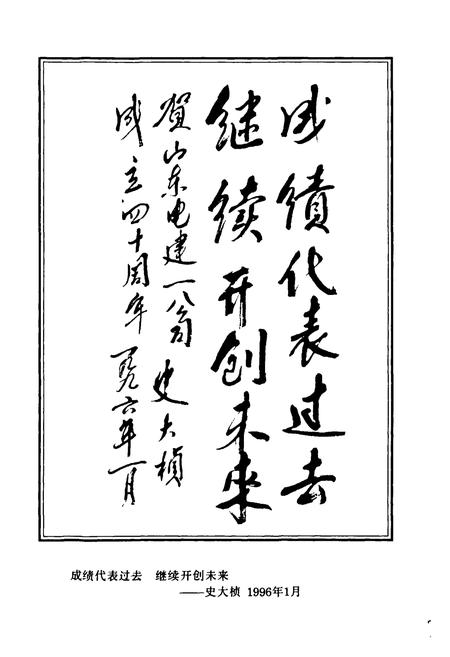 成绩代表过去
继续开创未来
贺山东电建一公司 史大桢
成立四十周年 一九九六年一月
成绩代表过去 继续开创未来
——史大桢 1996年1月